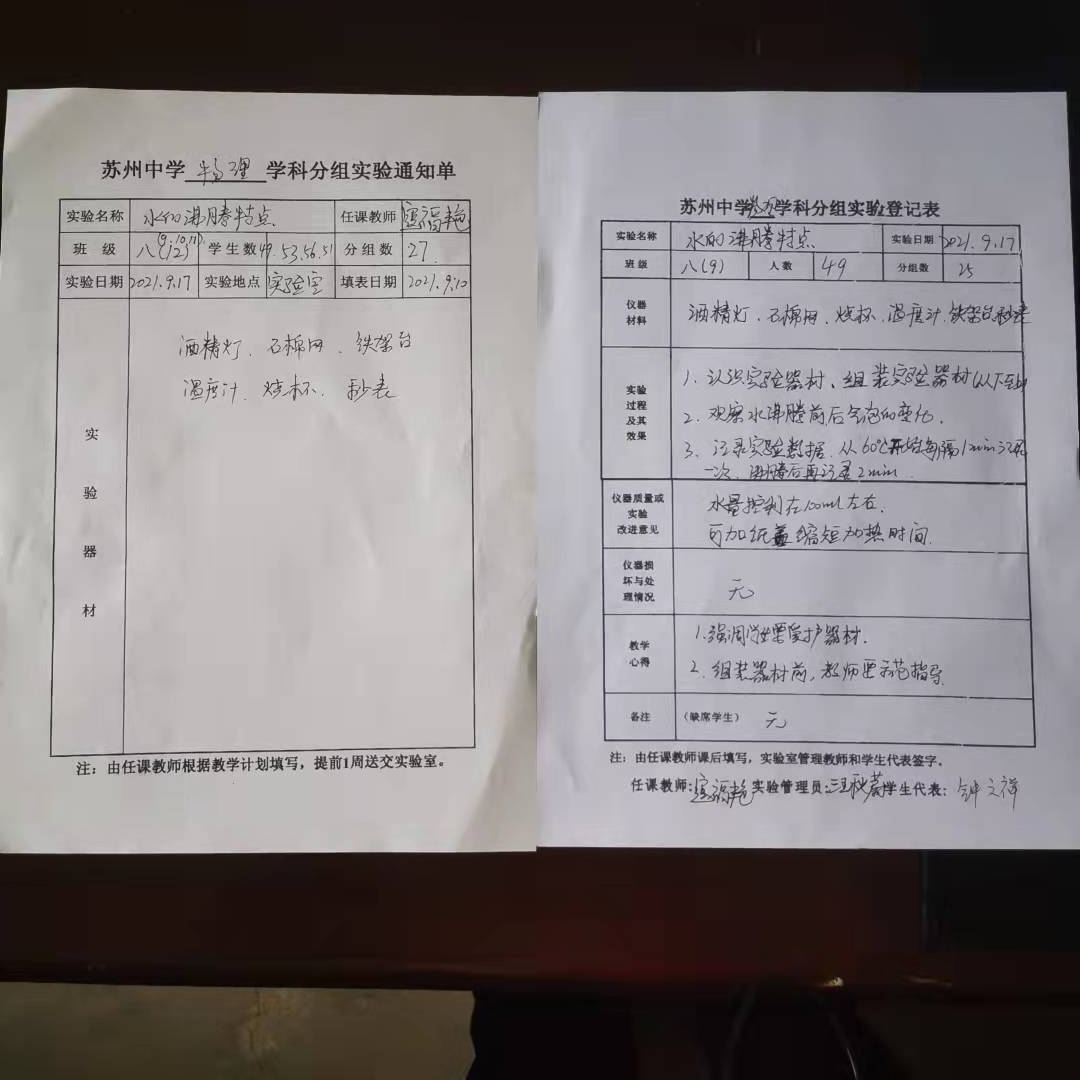 苏州中学 物理 学科分组实验通知单
实验名称 水的沸腾特点 任课教师 寇福艳
班 级 八(9.10.11.12) 学生数 49.53.56.51 分组数 27.
实验日期 2021.9.17 实验地点 实验室 填表日期 2021.9.10
实验器材
酒精灯、石棉网、铁架台
温度计、烧杯、秒表
注：由任课教师根据教学计划填写，提前1周送交实验室。
苏州中学 物理 学科分组实验登记表
实验名称 水的沸腾特点 实验日期 2021.9.17
班级 八(9) 人数 49 分组数 25
仪器材料 酒精灯、石棉网、烧杯、温度计、铁架台、秒表
实验过程及其效果
1、认识实验器材、组装实验器材(从下至上)
2、观察水沸腾前后气泡的变化.
3、记录实验数据、从60℃开始每隔1min记录
一次，沸腾后再记录2min.
仪器质量或实验改进意见
水量控制在100ml左右.
可加纸盖缩短加热时间.
仪器损坏与处理情况 无
教学心得
1.强调学生要爱护器材.
2.组装器材前，教师要示范指导
备注 （缺席学生） 无
注：由任课教师课后填写，实验室管理教师和学生代表签字。
任课教师：寇福艳 实验管理员： 学生代表：钟文祥